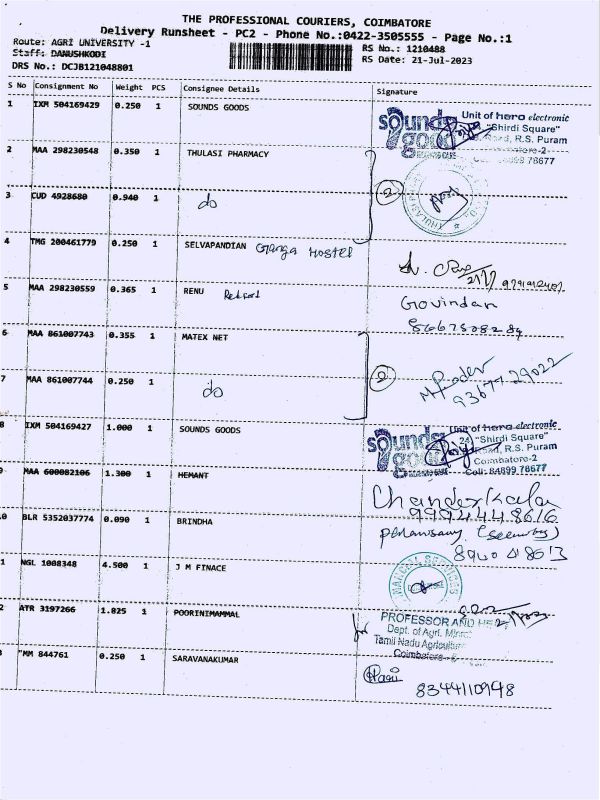 THE PROFESSIONAL COURIERS, COIMBATORE
Delivery Runsheet - PC2 - Phone No.:0422-3505555 - Page No.:1
Route: AGRI UNIVERSITY -1
RS No.: 1210488
Staff: DANUSHKODI
RS Date: 21-Jul-2023
DRS No.: DCJB121048801
S No Consignment No Weight PCS Consignee Details Signature
1 IXM 504169429 0.250 1 SOUNDS GOODS
sounds good Unit of hero electronic
"Shirdi Square"
Road, R.S. Puram
Coimbatore-2
98 76677
2 MAA 298230548 0.350 1 THULASI PHARMACY
2
3 CUD 4928680 0.940 1 do
4 TMG 200461779 0.250 1 SELVAPANDIAN Ganga Hostel
5 MAA 298230559 0.365 1 RENU
Govindan
6 MAA 861007743 0.355 1 MATEX NET
2
7 MAA 861007744 0.250 1 do
9367729022
8 IXM 504169427 1.000 1 SOUNDS GOODS
sounds good Unit of hero electronic
24, "Shirdi Square"
Road, R.S. Puram
Coimbatore-2
Cell: 84899 76677
9 MAA 600082106 1.300 1 HEMANT
Chanderkalan
9994448616
0 BLR 5352037774 0.090 1 BRINDHA
(Security)
1 NGL 1008348 4.500 1 J M FINACE
FINANCIAL SERVICES
2 ATR 3197266 1.825 1 POORINIMAMMAL
PROFESSOR AND HEAD
Dept. of Agri.
Tamil Nadu Agricultural
Coimbatore
MM 844761 0.250 1 SARAVANAKUMAR
8344110948